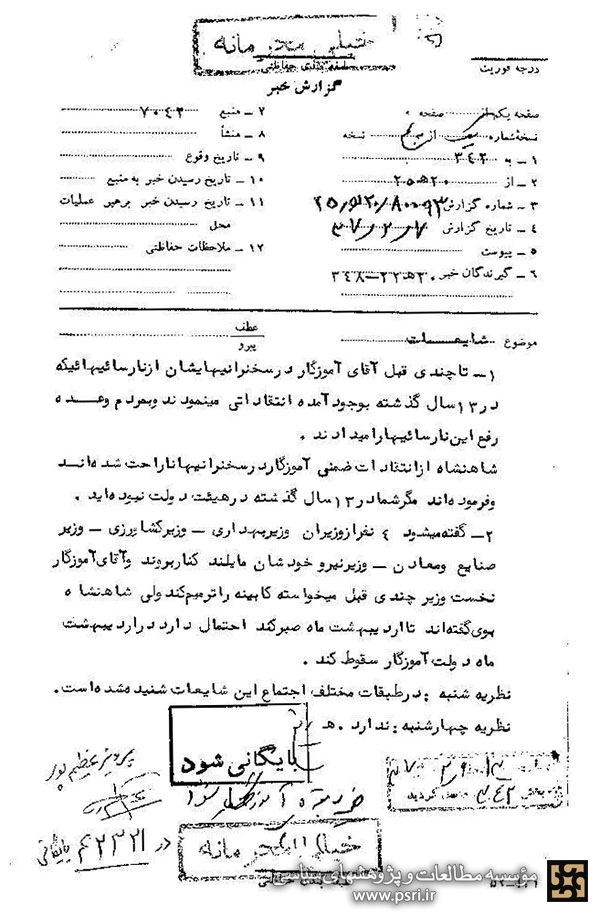 خیلی محرمانه
طبقه بندی حفاظتی
درجه فوریت
گزارش خبر
صفحه یک از صفحه
نسخه شماره یک از نسخه
۱ ـ به ۳۴۲
۲ ـ از ۲۰ ه ۲۵
۳ ـ شماره گزارش
۴ ـ تاریخ گزارش ۳۷/۲/۷
۵ ـ پیوست
۶ ـ گیرندگان خبر ۲۰ ه ۲۲ ـ ۳۴۸
۷ ـ منبع ۷۰۴۲
۸ ـ منشأ
۹ ـ تاریخ وقوع
۱۰ ـ تاریخ رسیدن خبر به منبع
۱۱ ـ تاریخ رسیدن خبر برهبر عملیات
محل
۱۲ ـ ملاحظات حفاظتی
موضوع شایعات
عطف
پیرو
۱ـ تا چندی قبل آقای آموزگار در سخنرانیهایشان از نارسائیهائیکه
در ۱۳ سال گذشته بوجود آمده انتقاداتی مینمودند و بمردم وعده
رفع این نارسائیها را میدادند .
شاهنشاه از انتقادات ضمنی آموزگار در سخنرانیها ناراحت شده‌اند
و فرموده‌اند مگر شما در ۱۳ سال گذشته در هیئت دولت نبوده‌اید .
۲ـ گفته میشود ٤ نفر از وزیران وزیر بهداری ـ وزیر کشاورزی ـ وزیر
صنایع و معادن ـ وزیر نیرو خودشان مایلند کنار بروند و آقای آموزگار
نخست وزیر چندی قبل میخواسته کابینه را ترمیم کند ولی شاهنشاه
بوی گفته‌اند تا اردیبهشت ماه صبر کند احتمال دارد در اردیبهشت
ماه دولت آموزگار سقوط کند .
نظریه شنبه : در طبقات مختلف اجتماع این شایعات شنیده شده است .
نظریه چهارشنبه : ندارد . ه
بایگانی شود
پرویز عظیم پور
در ۴۲۳۲۱ بایگانی
بخش ۳۴۲ واصل گردید
خیلی محرمانه
مؤسسه مطالعات و پژوهشهای سیاسی
www.psri.ir